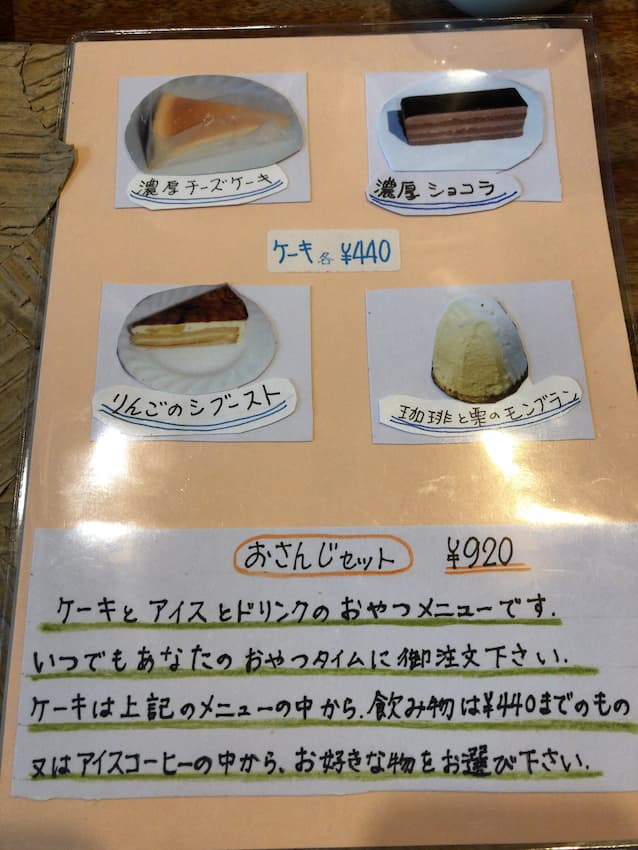 濃厚チーズケーキ
濃厚ショコラ
ケーキ各¥440
りんごのシブースト
珈琲と栗のモンブラン
おさんじセット ¥920
ケーキとアイスとドリンクのおやつメニューです.
いつでもあなたのおやつタイムに御注文下さい.
ケーキは上記のメニューの中から.飲み物は¥440までのもの
又はアイスコーヒーの中から、お好きな物をお選び下さい.